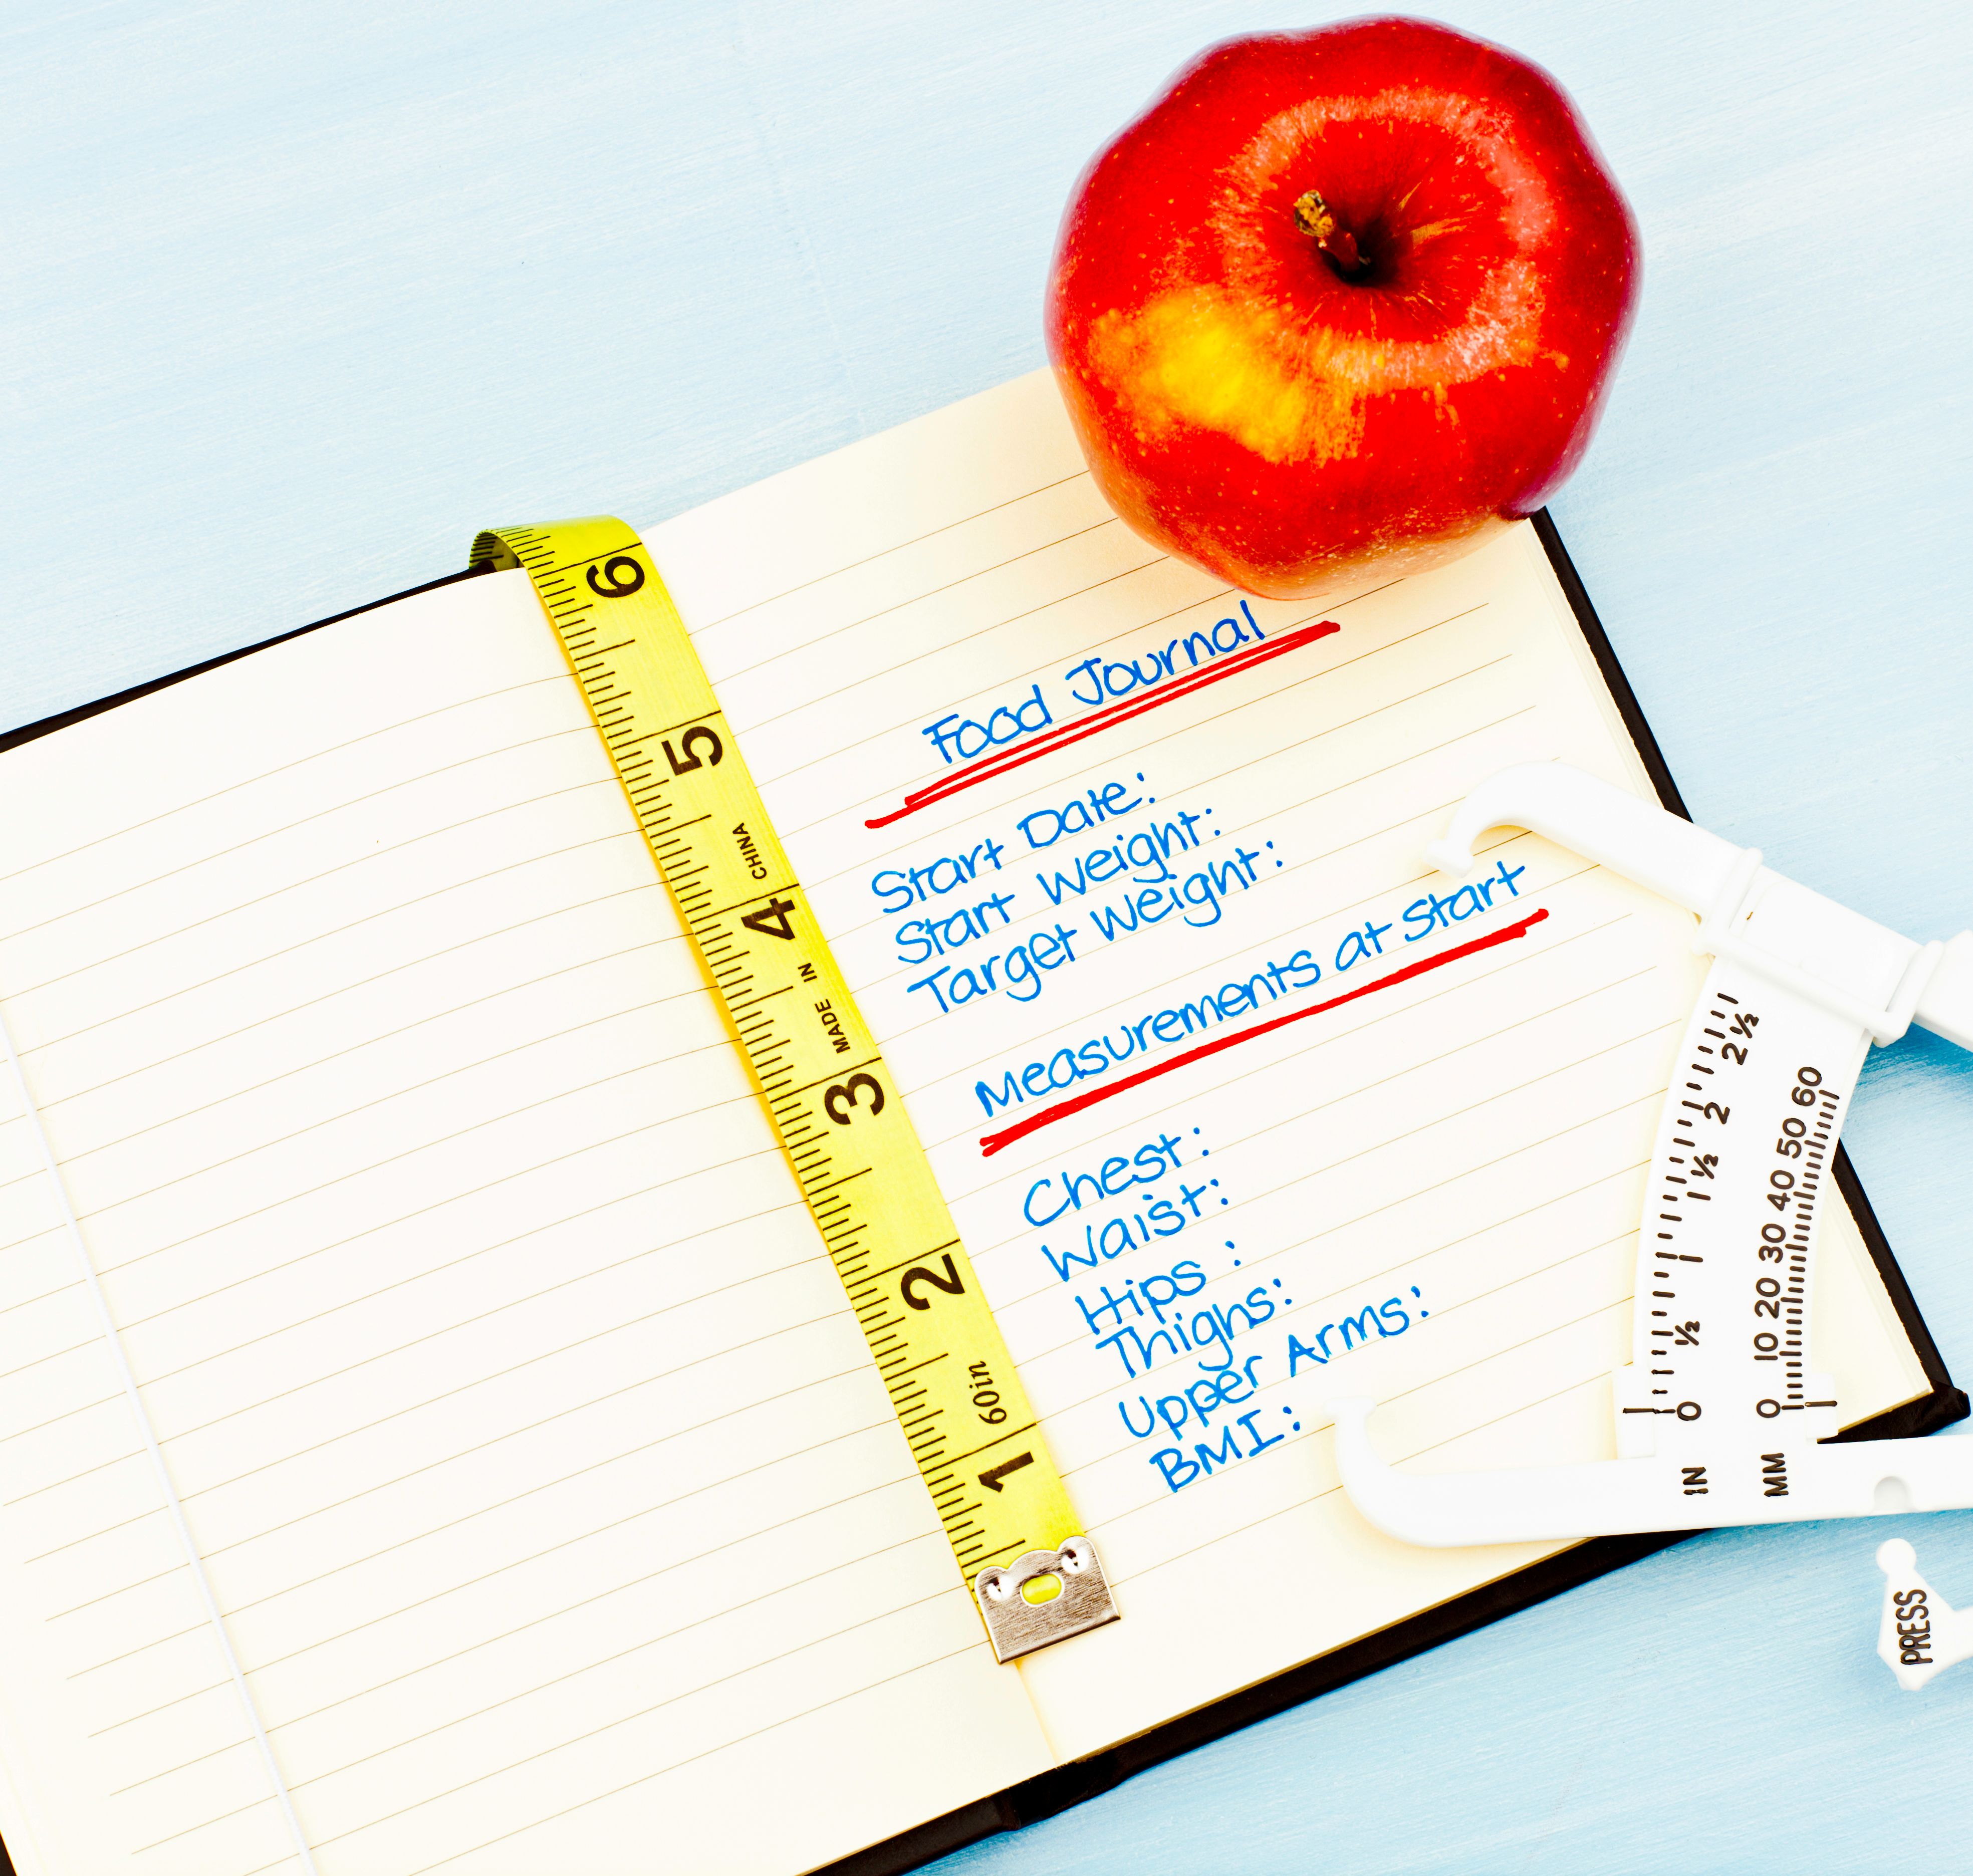 Food Journal
Start Date:
Start Weight:
Target Weight:
Measurements at Start
Chest:
Waist:
Hips :
Thighs:
Upper Arms:
BMI:
6
5
CHINA
4
MADE IN
3
2
60in
1
2½
2
½
1
1
½
0
IN
60
50
40
30
20
10
0
MM
PRESS